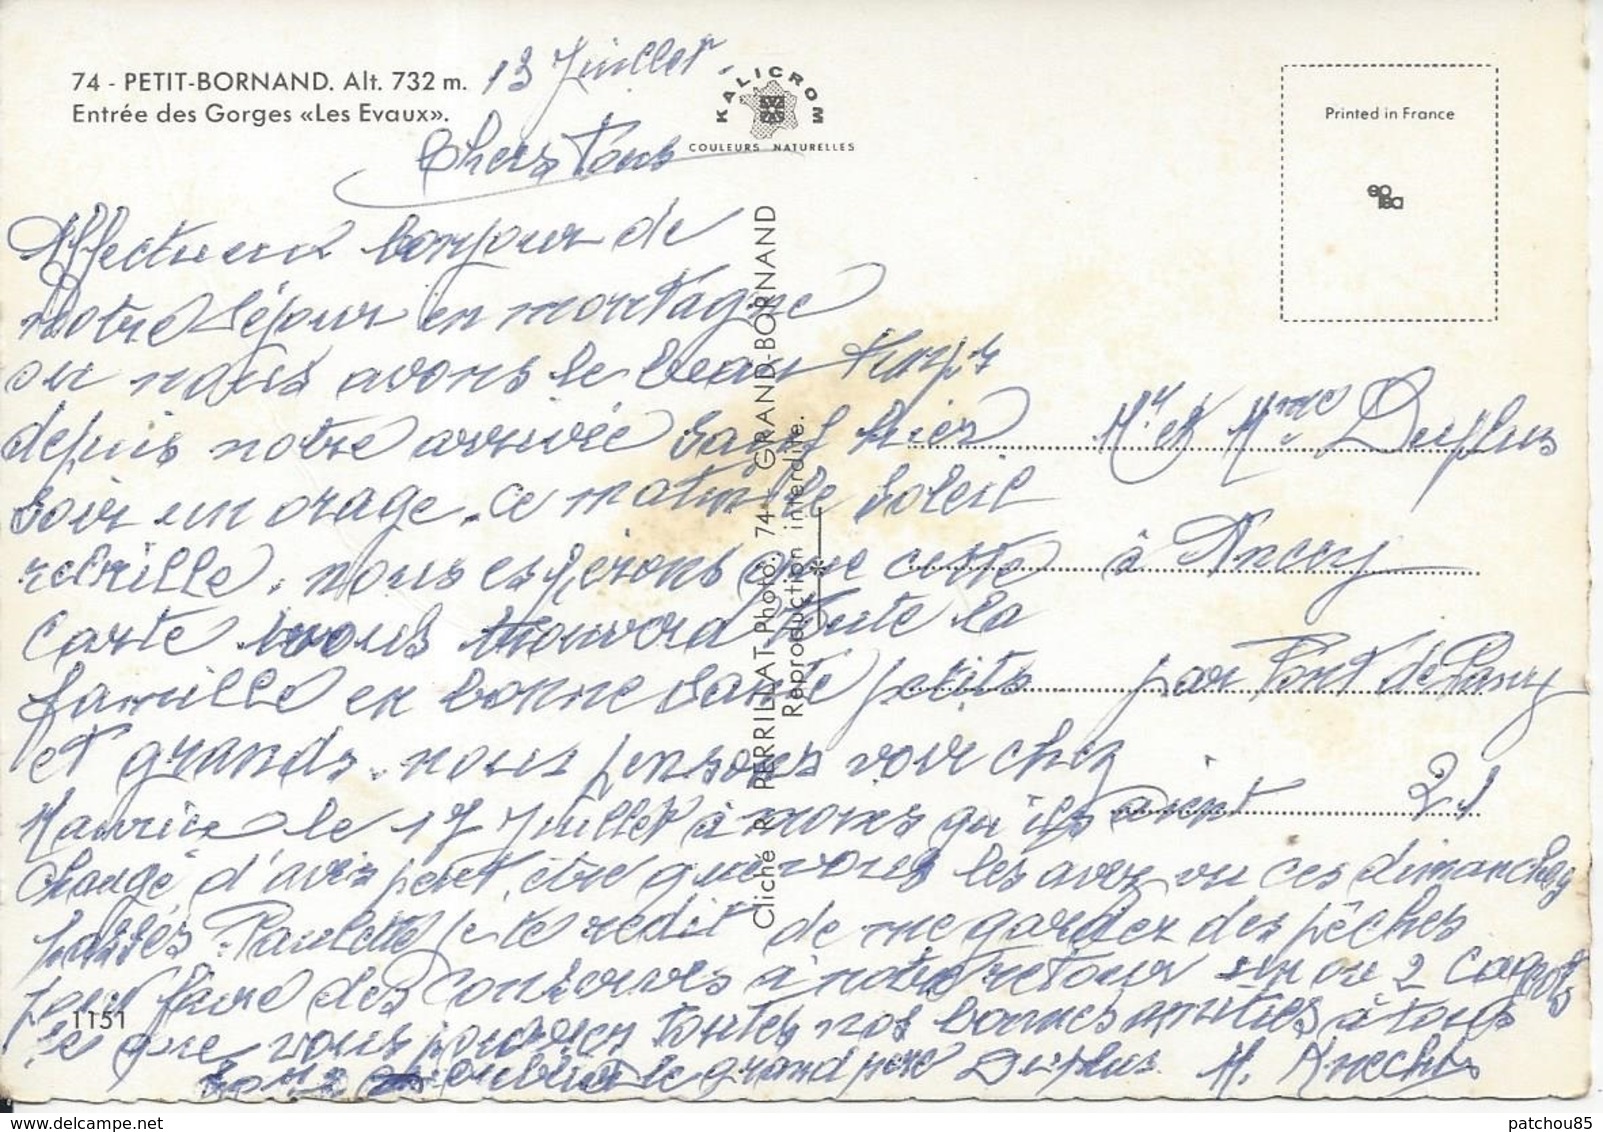 74 - PETIT-BORNAND. Alt. 732 m.
Entrée des Gorges «Les Evaux».
13 Juillet.
KALICROM
COULEURS NATURELLES
Printed in France
Chers Tous
Affectueux bonjour de
notre séjour en montagne
ou nous avons le beau temps
depuis notre arrivée sauf hier
soir un orage. ce matin le soleil
rebrille. nous espérons que cette
carte vous trouvera toute la
famille en bonne santé petits
et grands. nous pensons voir chez
Maurice le 17 Juillet à moins qu'ils aient
changé d'avis peut être que vous les avez vu ces dimanches
passés. Paulette je te redit de me garder des pêches
pour faire des conserves à notre retour un ou 2 cagots
ce que vous pouvez toutes nos bonnes amitiés à tous
sans oublier le grand père Duplus. M. Knecht
Mr et Mme Duplus
à Ancey
par Pont de Pany
21
Cliché R. PERRILLAT Photo. 74 - GRAND-BORNAND
Reproduction interdite.
1151
patchou85